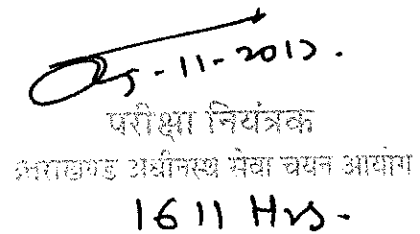 -11-2017.
परीक्षा नियंत्रक
उत्तराखण्ड अधीनस्थ सेवा चयन आयोग
1611 Hrs-